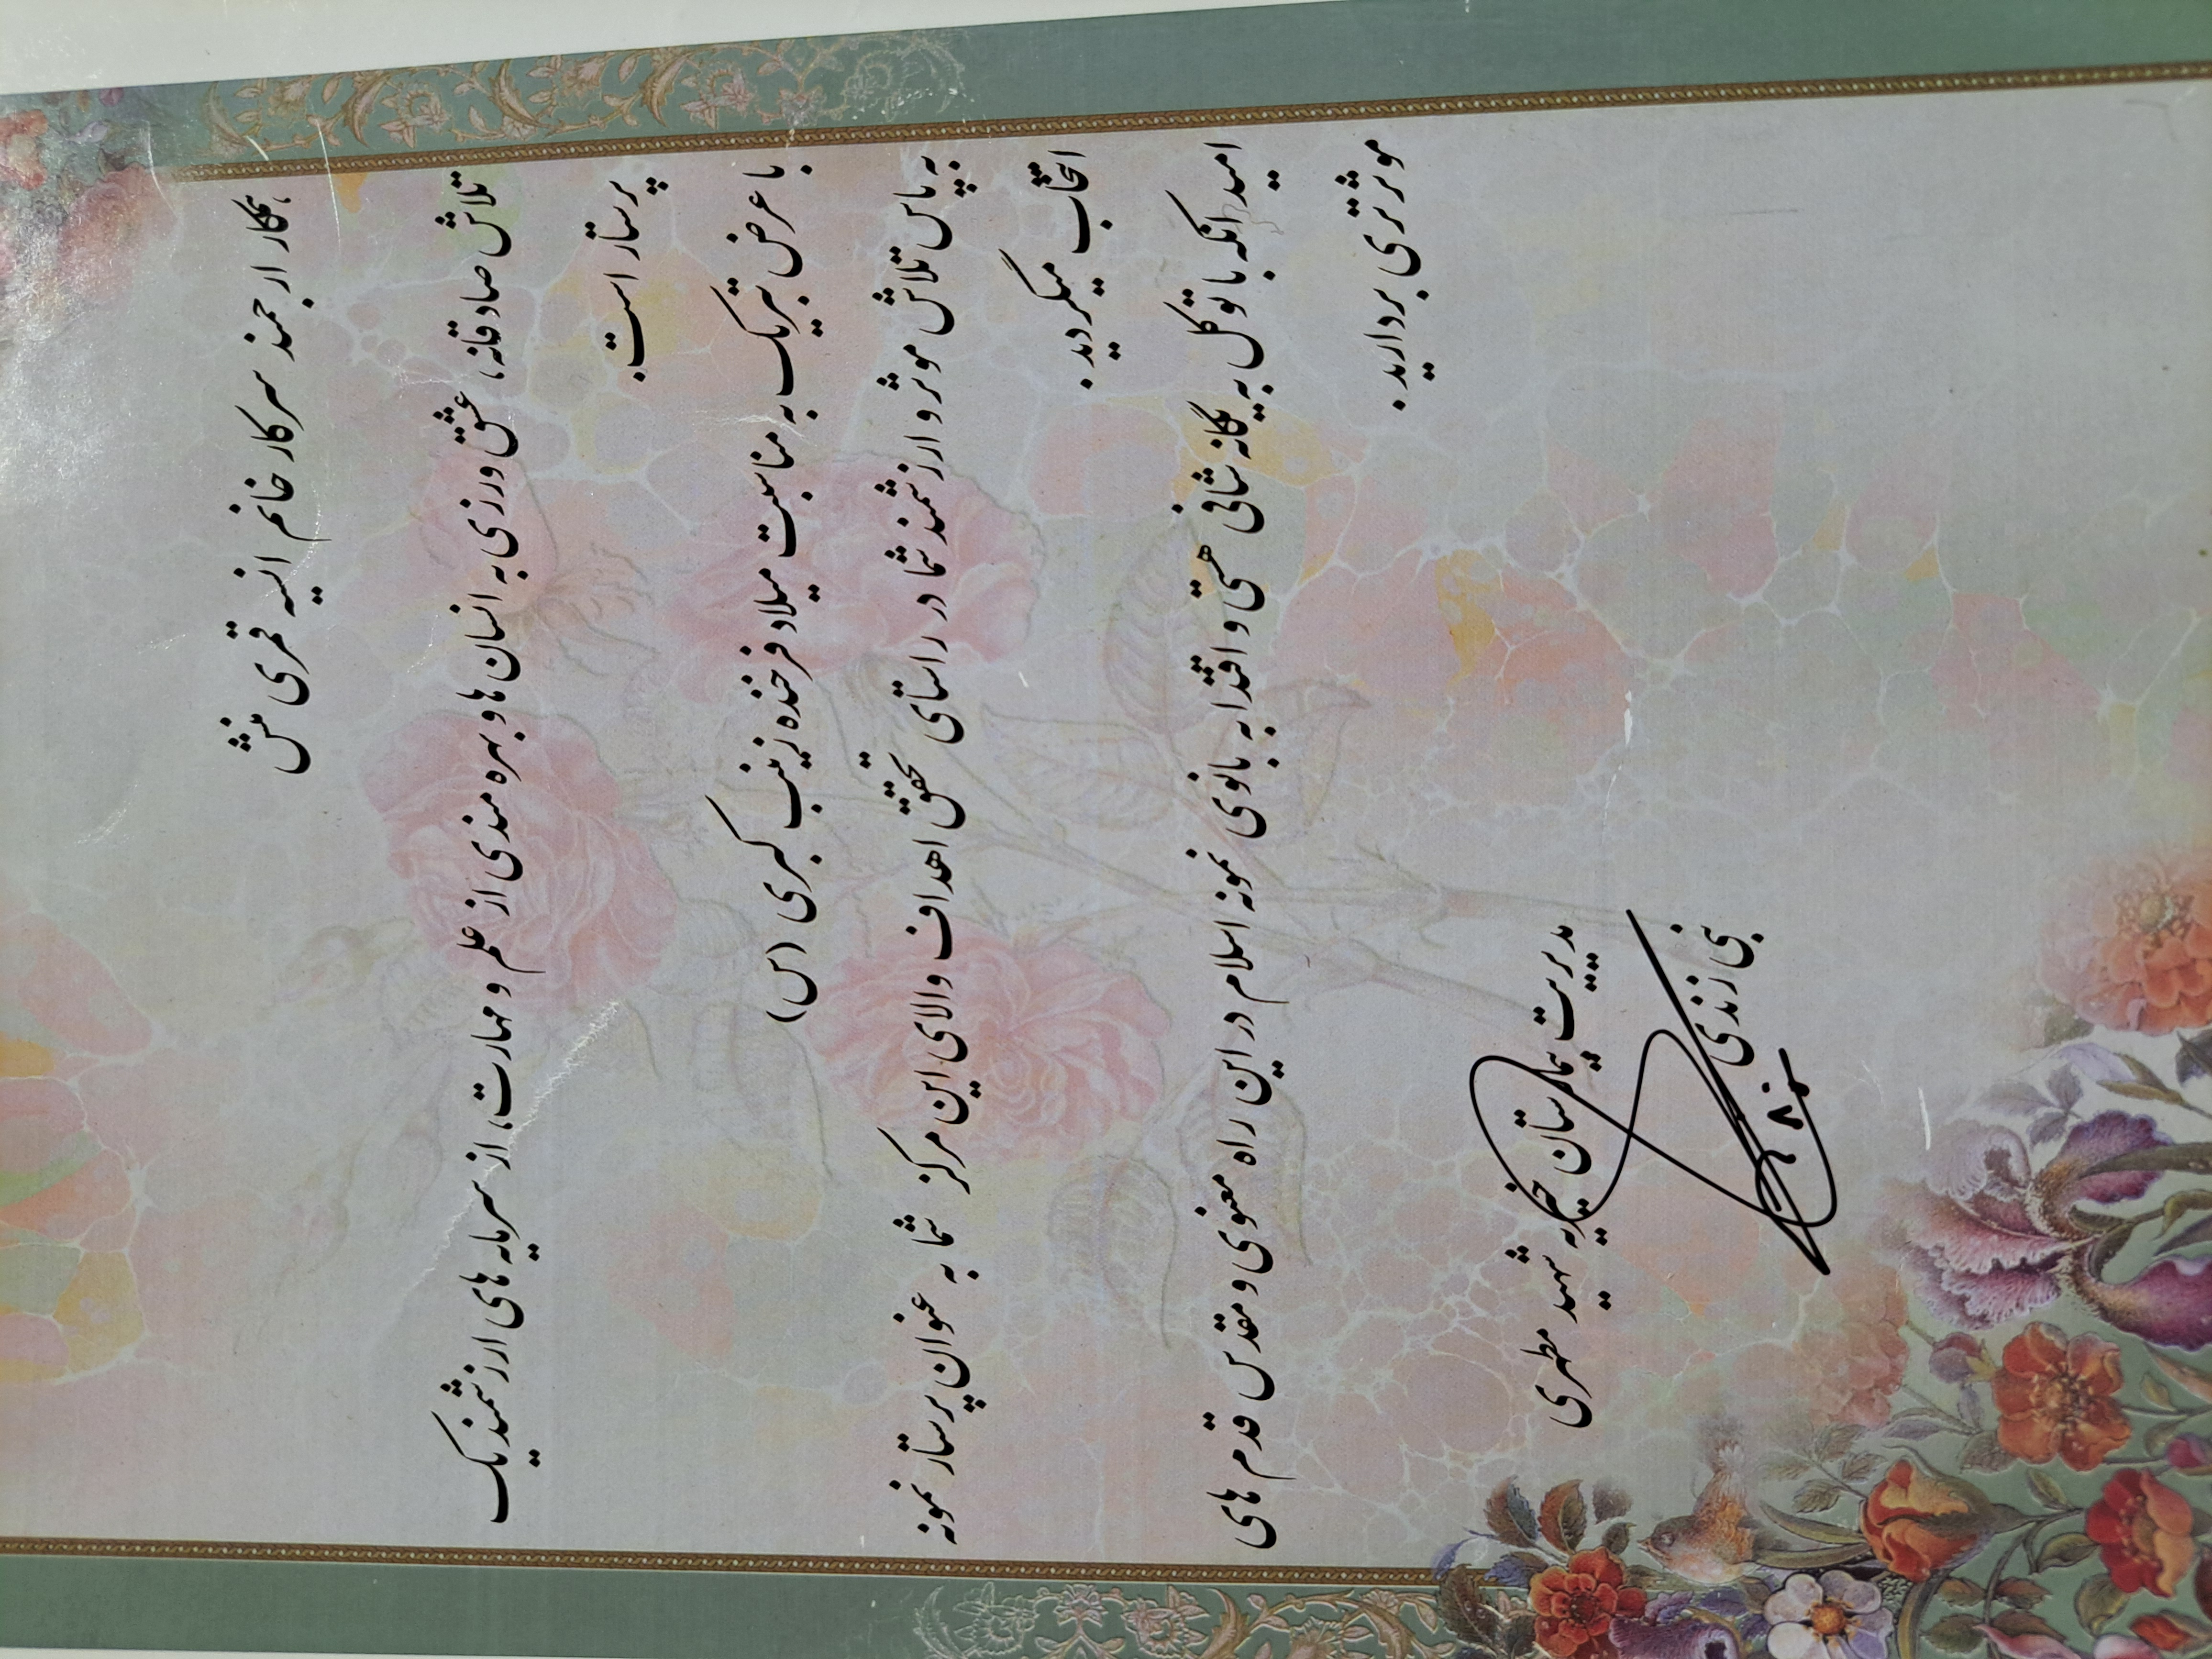 همکار ارجمند سرکار خانم انسیه قمری منش
تلاش صادقانه، عشق ورزی به انسان ها و بهره مندی از علم و مهارت، از سرمایه های ارزشمند یک
پرستار است.
با عرض تبریک به مناسبت میلاد فرخنده زینب کبری (س)
به پاس تلاش موثر و ارزشمند شما در راستای تحقق اهداف والای این مرکز شما به عنوان پرستار نمونه
انتخاب میگردید.
امید آنکه با توکل به یگانه شافی هستی و اقتدا به بانوی نمونه اسلام در این راه معنوی و مقدس قدم های
موثرتری بردارید.
مدیریت بیمارستان خیریه شهید مطهری
بنی زندی